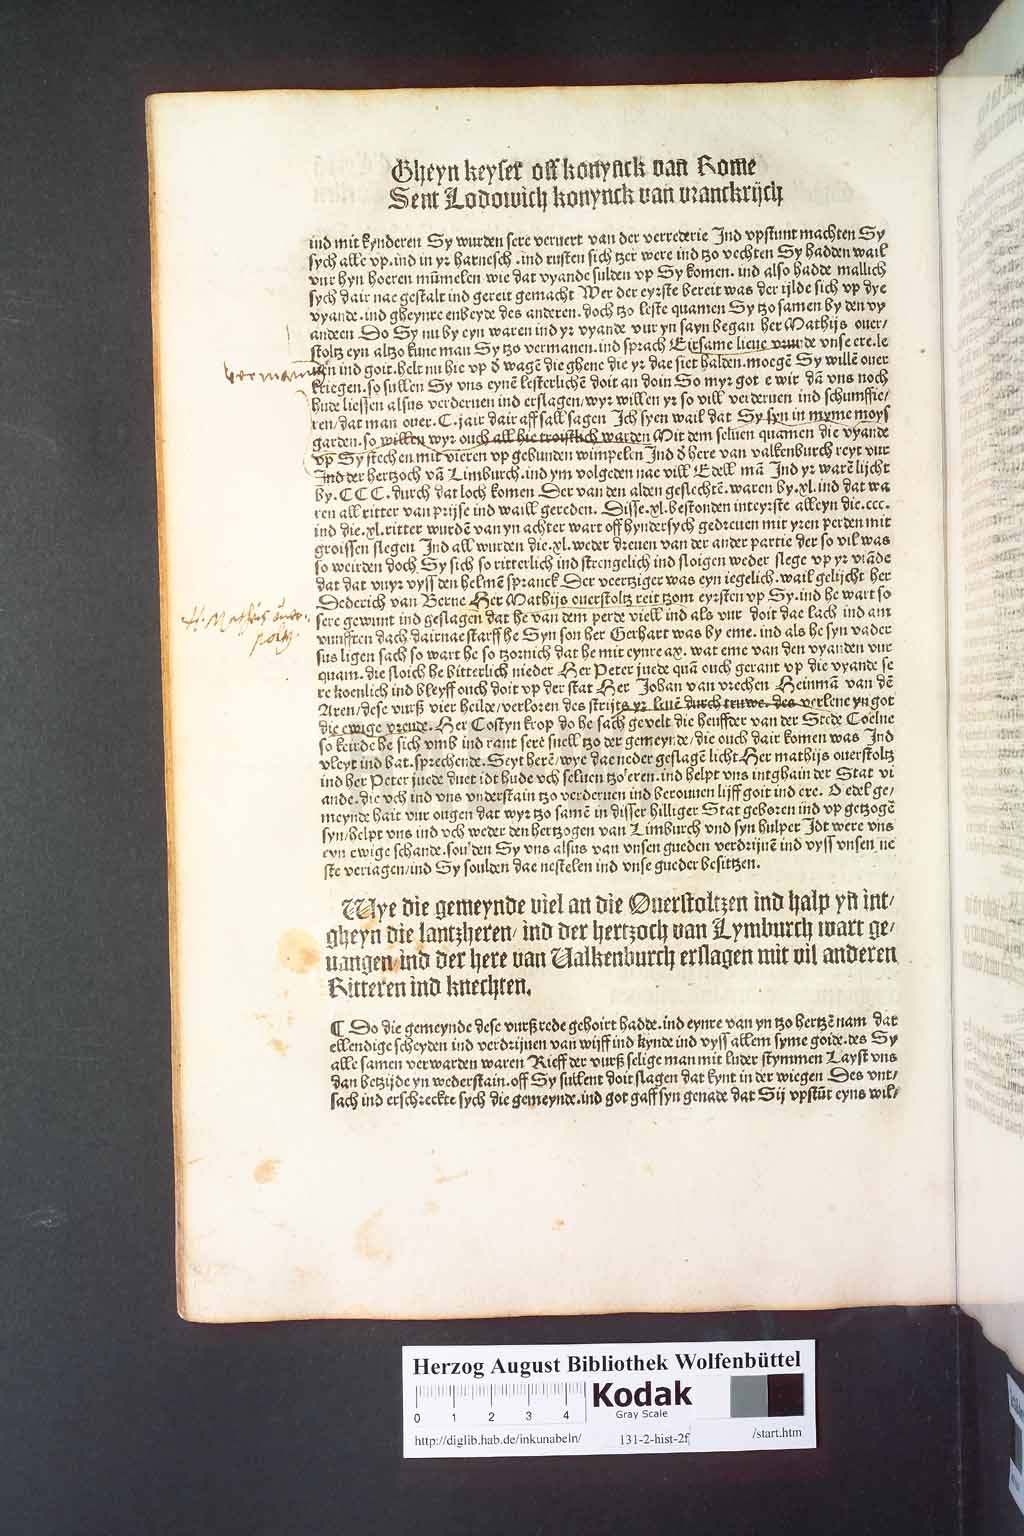 Gheyn keyser off konynck van Rome
Sent Lodowich konynck van vranckrijch
ind mit kynderen Sy wurden sere veruert van der verrederie Ind vpstunt machten Sy
sych alle vp. ind in yr harnesch. ind rusten sich tzer were ind tzo vechten Sy hadden wail
vur hyn hoeren mūmelen wie dat vyande sulden vp Sy komen. ind also hadde mallich
sych dair nae gestalt ind gereit gemacht Wer der eyrste bereit was der ijlde sich vp dye
vyande. ind gheynre enbeyde des anderen. doch tzo leste quamen Sy tzo samen by den vy
anden Do Sy nu by eyn waren ind yr vyande vur yn sayn began her Mathijs ouer/
stoltz eyn altzo kune man Sy tzo vermanen. ind sprach Eirsame lieue vrunde vnse ere. le
vermanung
uen ind goit. helt nu hie vp ð wagē die ghene die yr dae siet halden. moegē Sy willē ouer
kriegen. so sullen Sy vns eynē lesterlichē doit an doin So myr got e wir dā vns noch
hude liessen alsus verderuen ind erslagen/ wyr willen yr so vill verderuen ind schumffie/
ren/ dat man ouer. C. jair dair aff sall sagen Ich syen wail dat Sy syn in myme moys
garden. so willen wyr ouch all hie troistlich warden Mit dem seluen quamen die vyande
vp Sy stechen mit vieren vp gebunden wimpelen Ind ð here van valkenburch reyt vur
Ind der hertzoch vā Limburch. ind ym volgeden nae vill Edell mā Ind yr warē licht
by. CCC. durch dat loch komen Der van den alden geslechtē. waren by. xl. ind dat wa
ren all ritter van prijse ind waill gereden. Disse. xl. bestonden inteyrste alleyn die. ccc.
ind die. xl. ritter wurdē van yn achter wart off hyndersych gedreuen mit yren perden mit
groissen slegen Ind all wurden die. xl. weder dreuen van der ander partie der so vil was
so weirden doch Sy sich so ritterlich ind strengelich ind sloigen weder slege vp yr viāde
dat dat vuyr vyss den helmē spranck Der veertziger was eyn iegelich. wail gelijcht her
Dederich van Berne Her Mathijs ouerstoltz reit tzom eyrsten vp Sy. ind he wart so
H. Mathijs ouer-
stoltz
sere gewunt ind geslagen dat he van dem perde viell ind als vur doit dae lach ind am
vunfften dach dairnae starff he Syn son her Gerhart was by eme. ind als he syn vader
sus ligen sach so wart he so tzornich dat he mit eynre ax. wat eme van den vyanden vur
quam. die sloich he bitterlich nieder Her Peter juede quā ouch gerant vp die vyande se
re koenlich ind bleyff ouch doit vp der stat Her Johan van vrechen Heinmā van dē
Aren/ dese vurß vier helde/ verloren des strijts yr leuē durch truwe. des verlene yn got
die ewige vreude. Her Costyn krop do he sach gevelt die heuffder van der Stede Coelne
so keirde he sich vmb ind rant sere snell tzo der gemeynde/ die ouch dair komen was Ind
vleyt ind bat. sprechende. Seyt herē/ wye dae neder geslagē licht Her mathijs ouerstoltz
ind her Peter juede duet idt hude vch seluen tzo eren. ind helpt vns intghain der Stat vi
ande. die vch ind vns vnderstain tzo verderuen ind berouuen lijff goit ind ere. O edel ge/
meynde hait vur ougen dat wyr tzo samē in disser hilliger Stat geboren ind vp getzogē
syn/ helpt vns ind vch weder den hertzogen van Limburch vnd syn hulper Idt were vns
eyn ewige schande. soulden Sy vns alsus van vnsen gueden verdrijuē ind vyss vnsen ne
ste veriagen/ ind Sy soulden dae nestelen ind vnse gueder besittzen.
Wye die gemeynde viel an die Ouerstoltzen ind halp yn int/
gheyn die lantzheren/ ind der hertzoch van Lymburch wart ge/
uangen/ ind der here van Valkenburch erslagen mit vil anderen
Ritteren ind knechten.
¶ Do die gemeynde dese vurß rede gehoirt hadde. ind eynre van yn tzo hertzē nam dat
ellendige scheyden ind verdrijuen van wijff ind kynde ind vyss allem syme goide. des Sy
alle samen verwarden waren Rieff der vurß selige man mit luder stymmen Layst vns
dan betzijde yn wederstain. off Sy sullent doit slagen dat kynt in der wiegen Des vnt/
sach ind erschreckte sych die gemeynde. ind got gaff syn genade dat Sij vpstūt eyns wil/
Herzog August Bibliothek Wolfenbüttel
0 1 2 3 4
Kodak
Gray Scale
http://diglib.hab.de/inkunabeln/ 131-2-hist-2f /start.htm